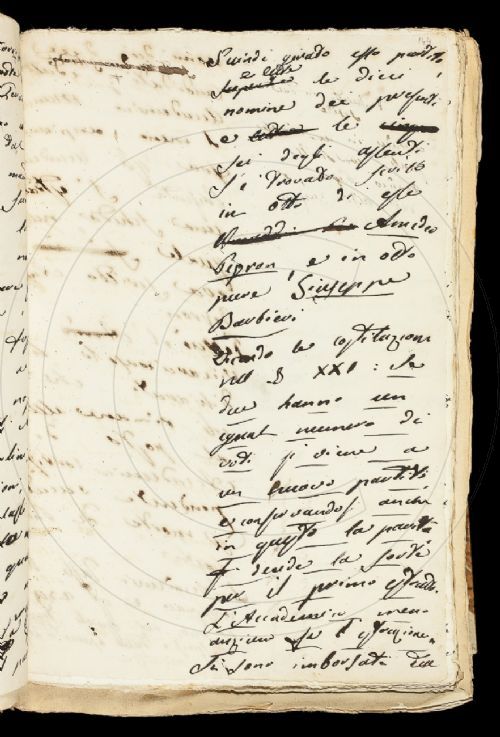 Quindi girato esso partito
e lette
le dieci
nomine dei presenti
e le
sei degli assenti
s'è trovato scritto
in otto di esse
Amedeo
Peyron, e in otto
pure Giuseppe
Barbieri
le costituzioni
nel § XXI: Se
due hanno un
egual numero di
voti si viene a
un nuovo partito
e conservandosi anche
in questo la parità
decide la sorte
per il primo estratto.
L'Accademia
estrazione.
Si sono imborsati due